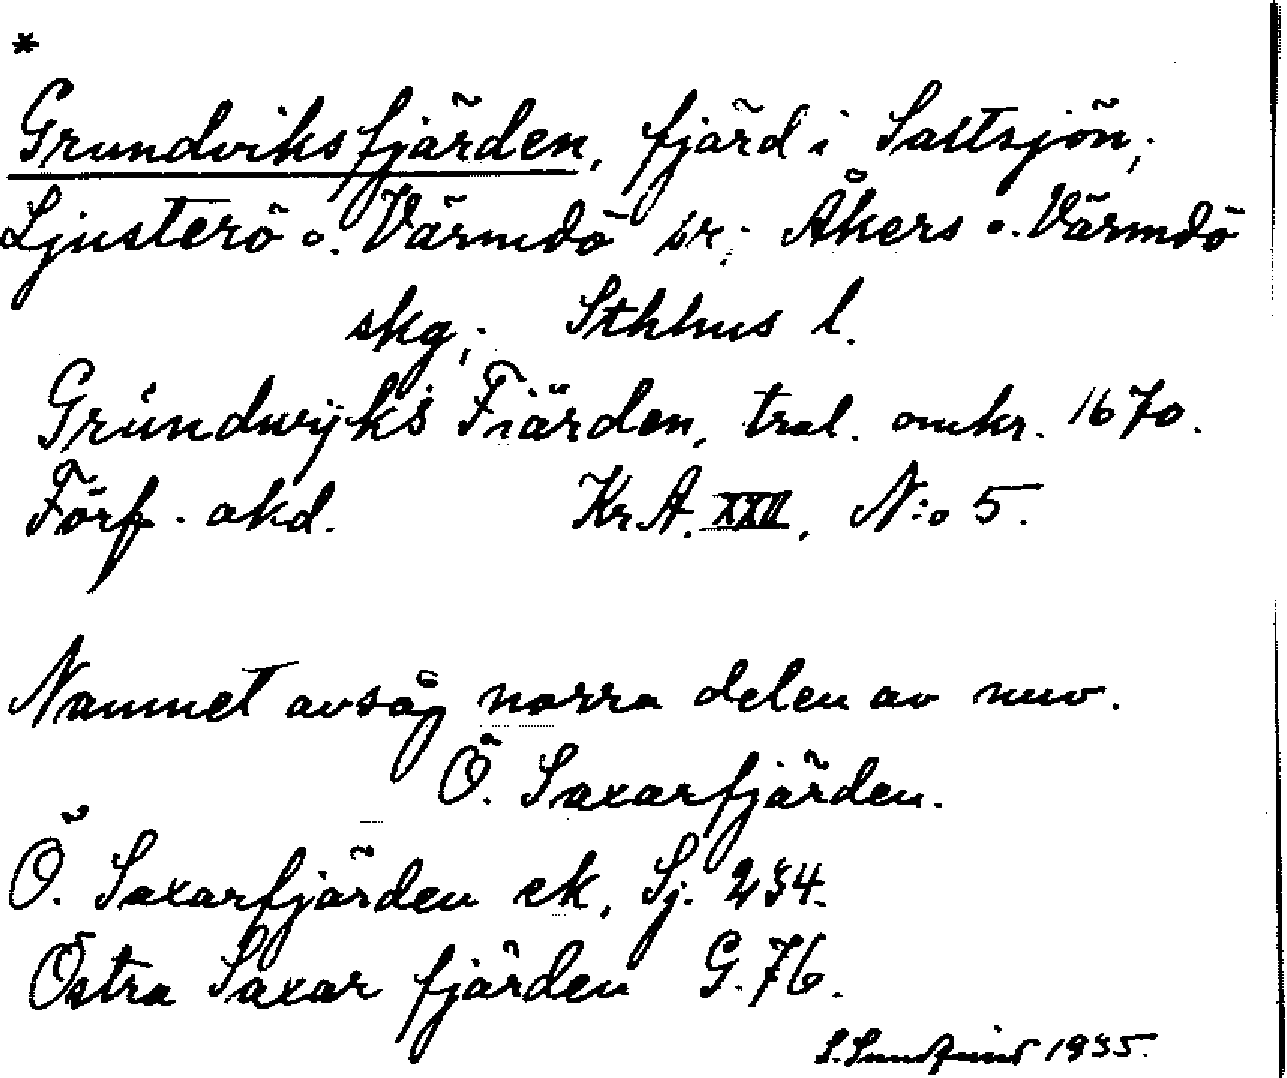 *
Grundviksfjärden, fjärd i Saltsjön;
Ljusterö o. Värmdö sr; Åkers o. Värmdö
skg; Sthlms l.
Grundwijks Fiärden, tral. omkr. 1670.
Förf. okd. Kr.A. XXII, N:o 5.
Namnet avsåg norra delen av nuv.
Ö. Saxarfjärden.
Ö. Saxarfjärden ek, Sj. 234.
Östra Saxar fjärden G. 76.
1935.